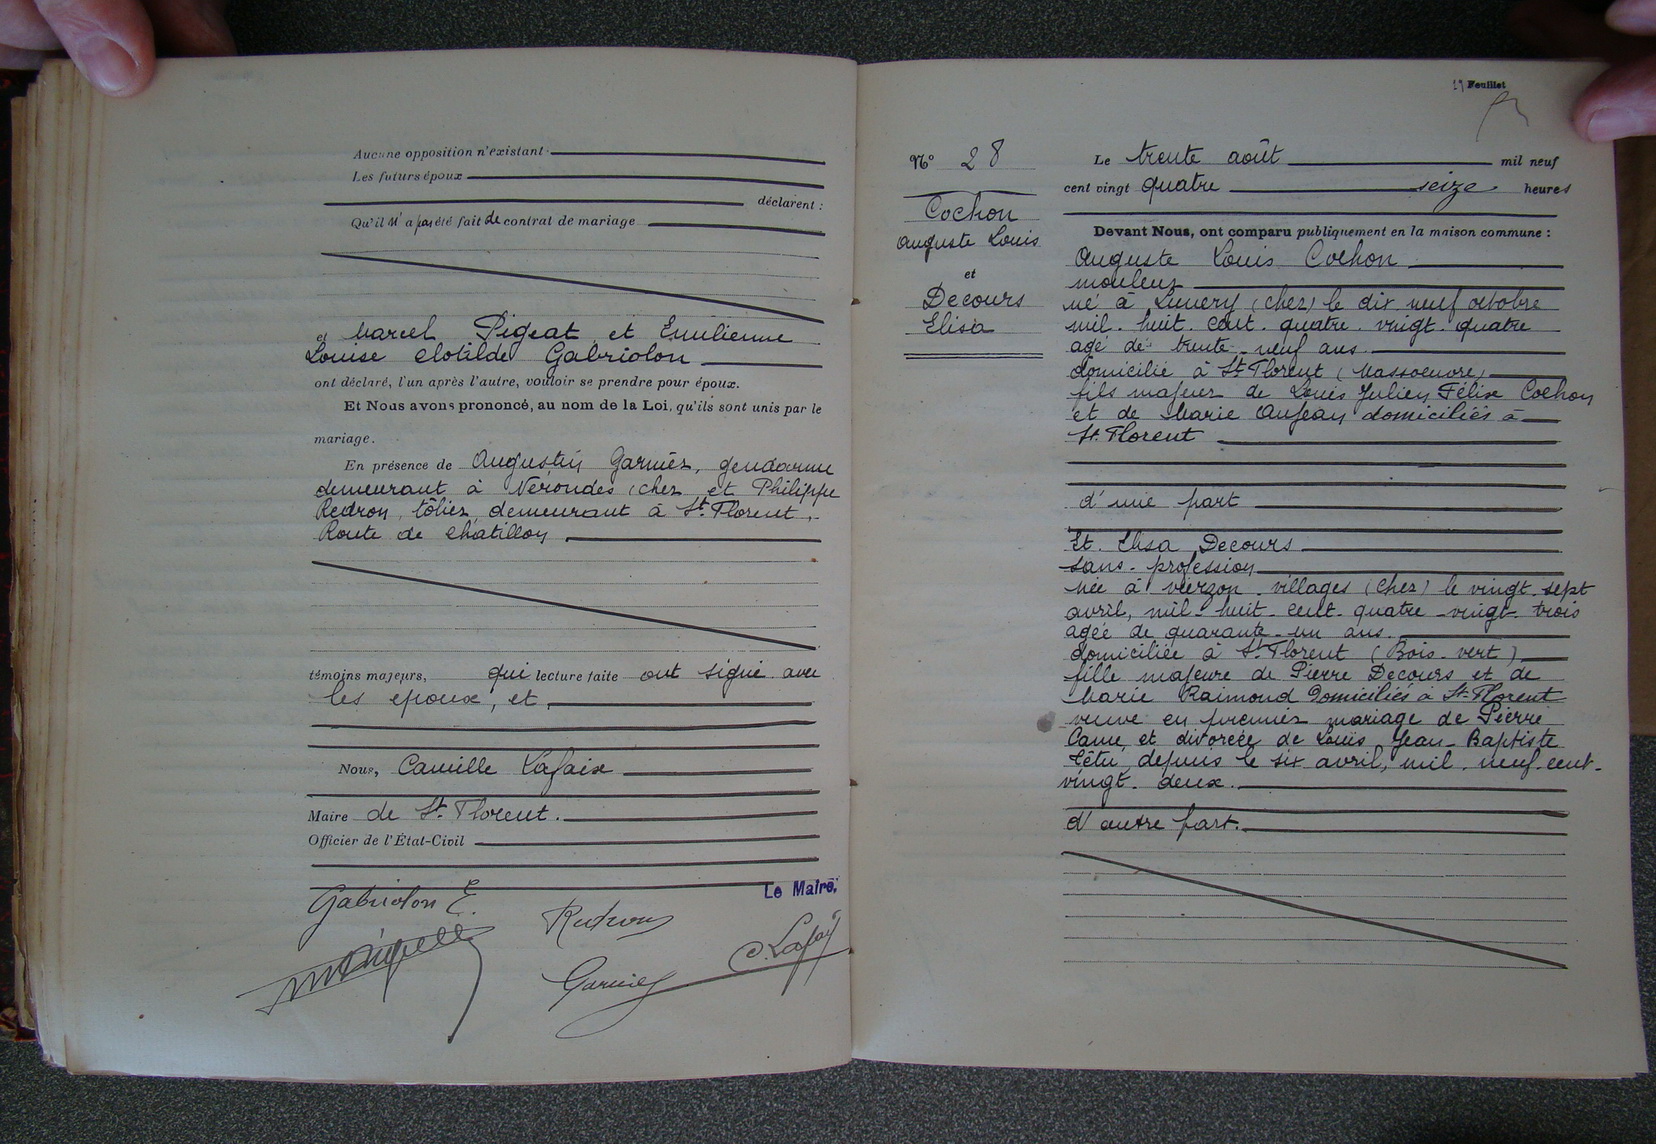 Aucune opposition n'existant
Les futurs époux
déclarent :
Qu'il n'a pas été fait de contrat de mariage
et Marcel Pigeat et Emilienne
Louise Clotilde Gabriolon
ont déclaré, l'un après l'autre, vouloir se prendre pour époux.
Et Nous avons prononcé, au nom de la Loi, qu'ils sont unis par le
mariage.
En présence de Augustin Garnier, gendarme
demeurant à Nérondes (Cher) et Philippe
Redron, tôlier demeurant à St Florent,
Route de Châtillon
témoins majeurs, qui lecture faite ont signé avec
les époux, et
Nous, Camille Lafaix
Maire de St Florent.
Officier de l'État-Civil
Le Maire,
Gabriolon E.
Redron
C. Lafaix
Garnier
Feuillet
N° 28
Cochon
Auguste Louis
et
Decours
Elisa
Le trente août mil neuf
cent vingt quatre seize heures
Devant Nous, ont comparu publiquement en la maison commune :
Auguste Louis Cochon
mouleur
né à Lunery (Cher) le dix neuf octobre
mil huit cent quatre vingt quatre
agé de trente-neuf ans
domicilié à St Florent (Massoeuvre)
fils majeur de Louis Julien Félix Cochon
et de Marie Aujean domiciliés à
St Florent
d'une part
Et Elisa Decours
sans profession
née à Vierzon-villages (Cher) le vingt-sept
avril, mil huit cent quatre-vingt trois
agée de quarante-un ans.
domiciliée à St Florent (Bois-vert)
fille majeure de Pierre Decours et de
Marie Raimond domiciliés à St Florent
veuve en premier mariage de Pierre
et divorcée de Louis Jean-Baptiste
Têtu depuis le six avril, mil neuf cent-
vingt-deux.
d'autre part.